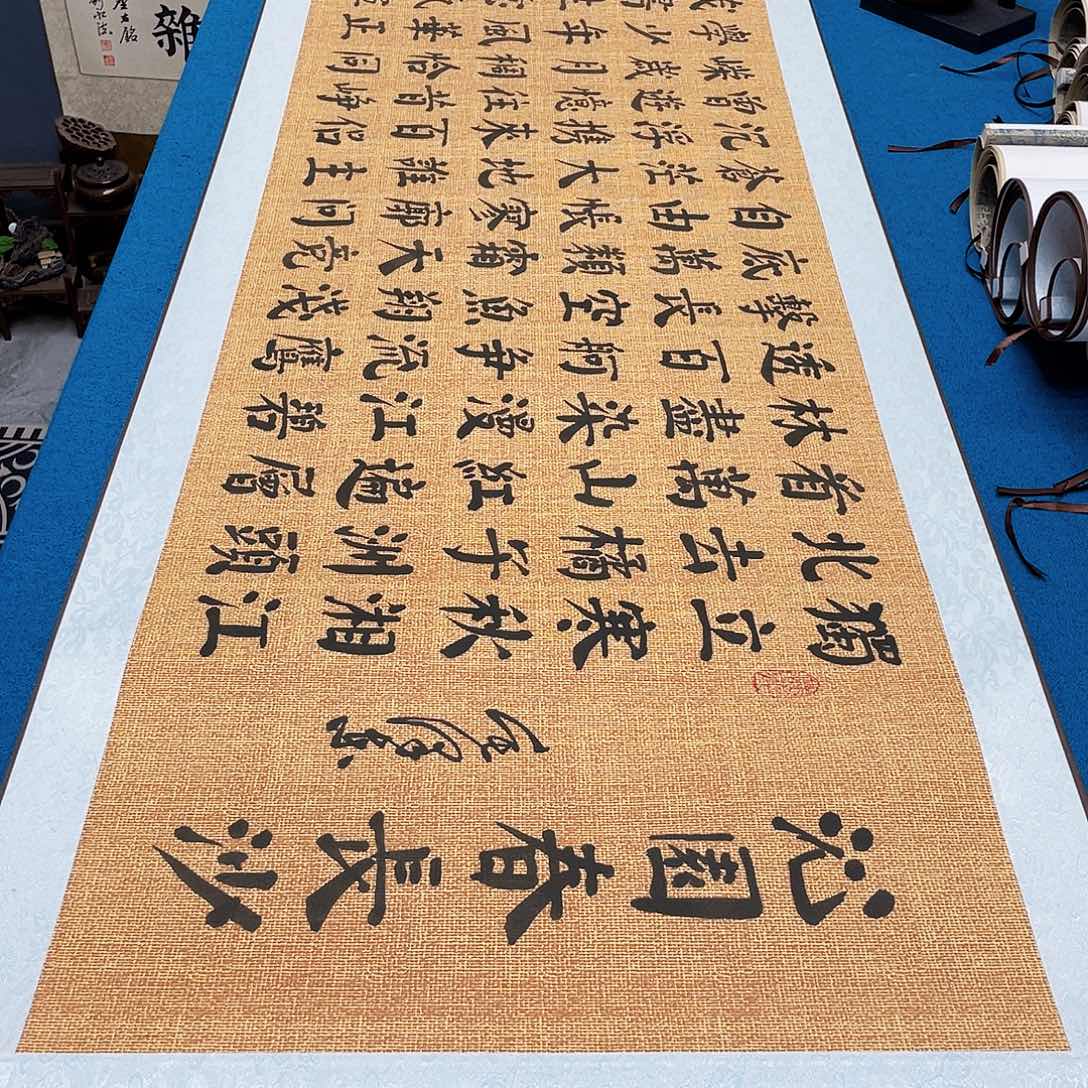 沁園春長沙
獨立寒秋湘江
北去橘子洲頭
看萬山紅遍層
林盡染漫江碧
透百舸爭流鷹
擊長空魚翔淺
底萬類霜天競
自由悵寥廓問
蒼茫大地誰主
沉浮攜來百侶
曾遊憶往昔崢
嶸歲月稠恰同
學少年風華正
雜